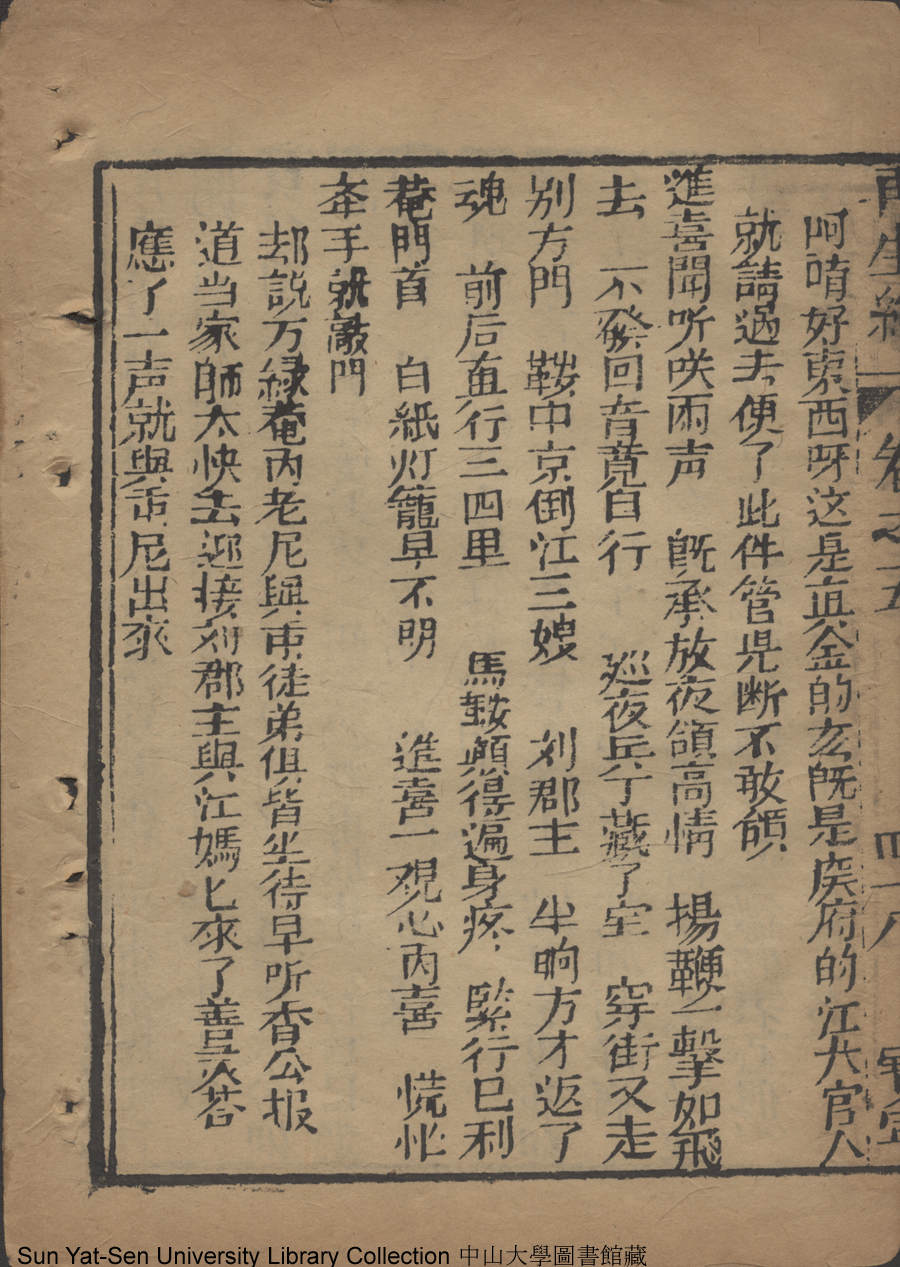 再生緣 卷之五 四十八
呵唷好東西呀这是真金的玄旣是矦府的江大官人
就請過去便了此件管是断不敢領
進喜聞听咲兩声 旣承放夜領高情 揚鞭一擊如飛
去 不發回音竟自行 廵夜兵丁藏了空 穿街又走
別方門 鞍中京倒江三嫂 刘郡主 半晌方才返了
魂 前后直行三四里 馬鞍顛得遍身疼 緊行巳利
菴門首 白紙灯籠早不明 進喜一覌心内喜 慌忙
牽手就敲門
却説万緑菴内老尼與
徒弟俱皆坐待早听香公报
道当家師太快去迎接刘郡主與江媽匕來了善灵荅
應了一声就與
尼出來
Sun Yat-Sen University Library Collection 中山大學圖書館藏